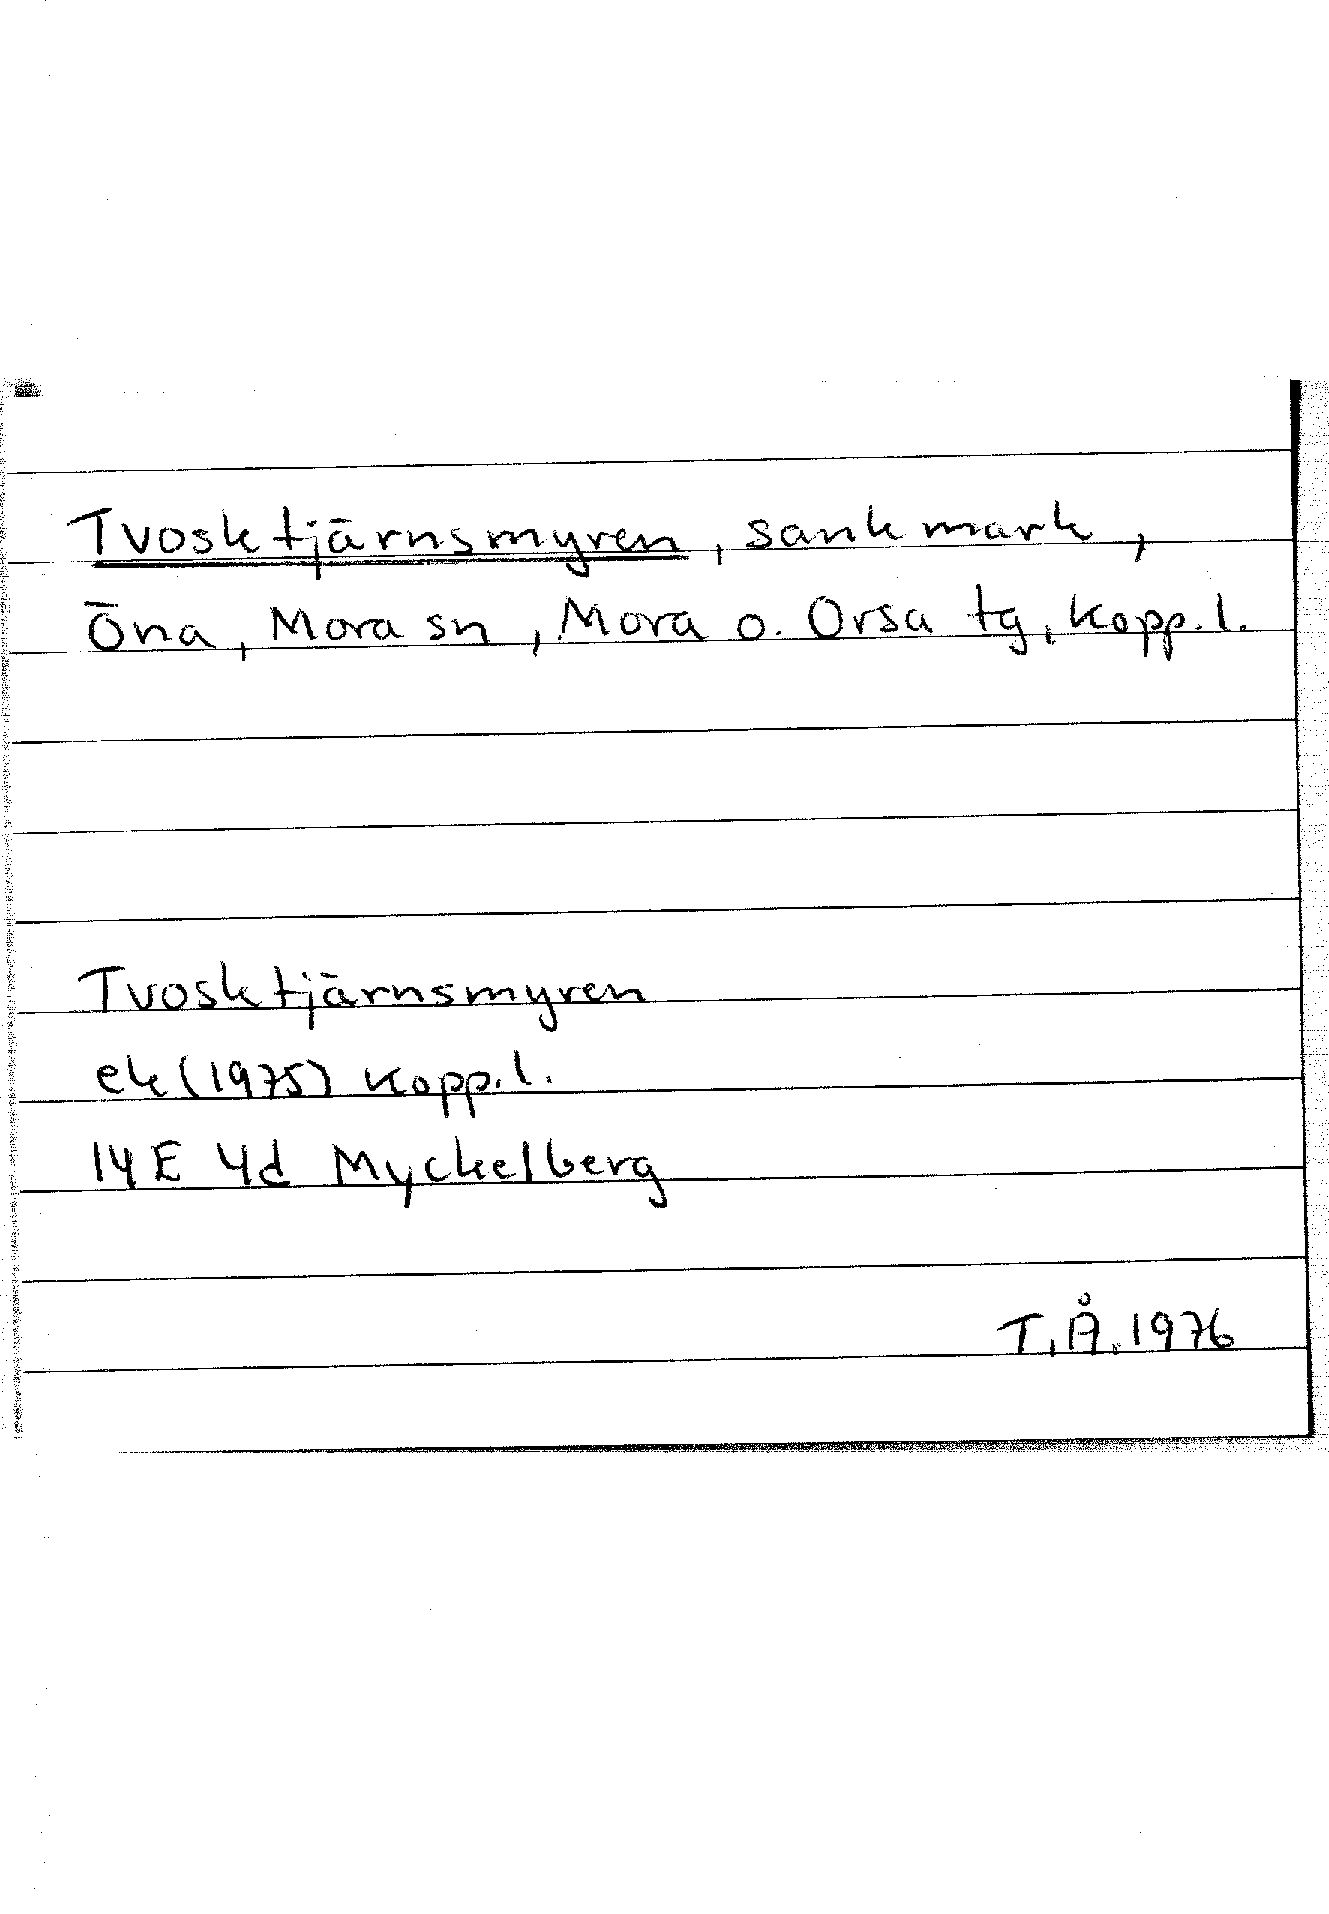 Tvosktjärnsmyren, sank mark,
Öna, Mora sn, Mora o. Orsa tg, Kopp.l.
Tvosktjärnsmyren
ek (1975) Kopp.l.
14E 4d Myckelberg
T.Å.1976